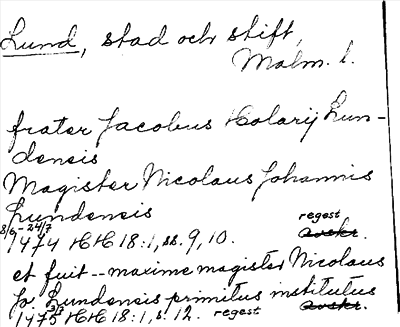 Lund, stad och stift,
Malm. l.
frater Jacobus Holarij Lun-
densis
Magister Nicolaus Johannis
Lundensis
8/6-24/7 regest
1474 HH 18:1, ss. 9, 10. avskr.
et fuit -- maxime magister Nicolaus
Jo. Lundensis primitus institutus
1475 HH 18:1, s. 12. regest avskr.